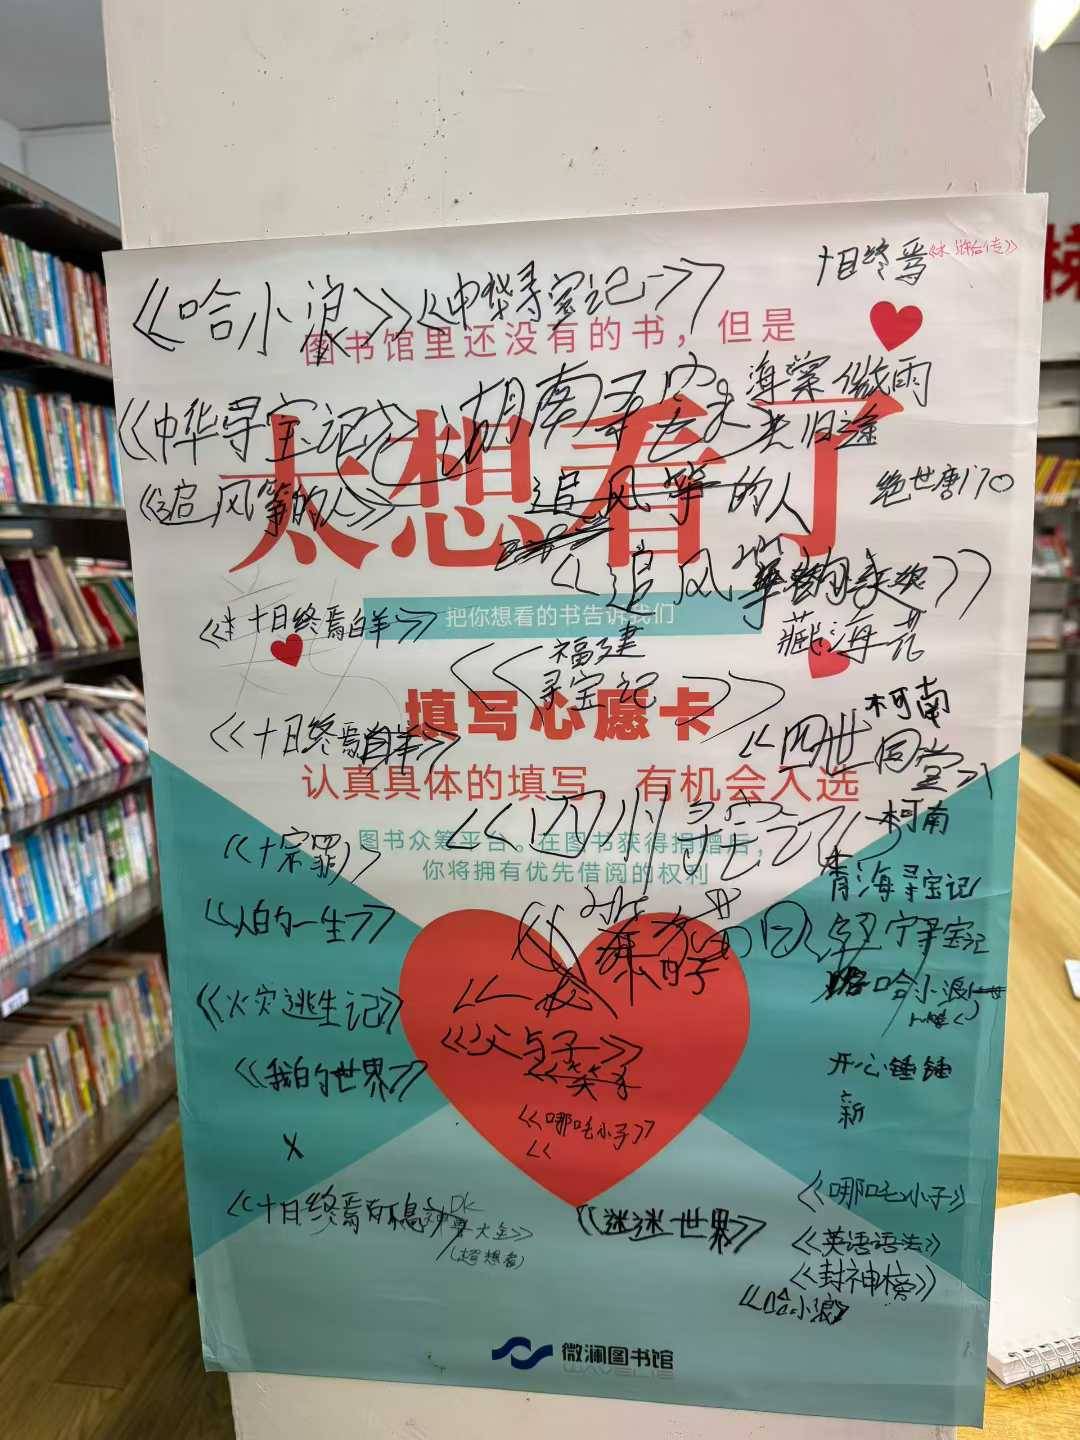 十日终焉
《水浒合传》
《哈小浪》《中华寻宝记》
图书馆里还没有的书，但是
海棠微雨
共归途
《中华寻宝记》
太想看了
绝世唐门
《追风筝的人》
追风筝的人
《追风筝的
藏海花
《十日终焉白羊》
把你想看的书告诉我们
《福建
寻宝记》
填写心愿卡
柯南
《十日终焉白羊》
《四世同堂》
认真具体的填写，有机会入选
柯南
图书众筹平台。在图书获得捐赠后，
你将拥有优先借阅的权利
《十宗罪》
青海寻宝记
《人的一生》
宁寻宝记
《火灾逃生记》
哈小浪
《父与子》
《我的世界》
开心锤锤
新
《哪吒小子》
《
X
《哪吒小子》
《十日终焉
DK
大全》
(超想看)
《迷迷世界》
《英语语法》
《封神榜》
《哈小浪》
微澜图书馆